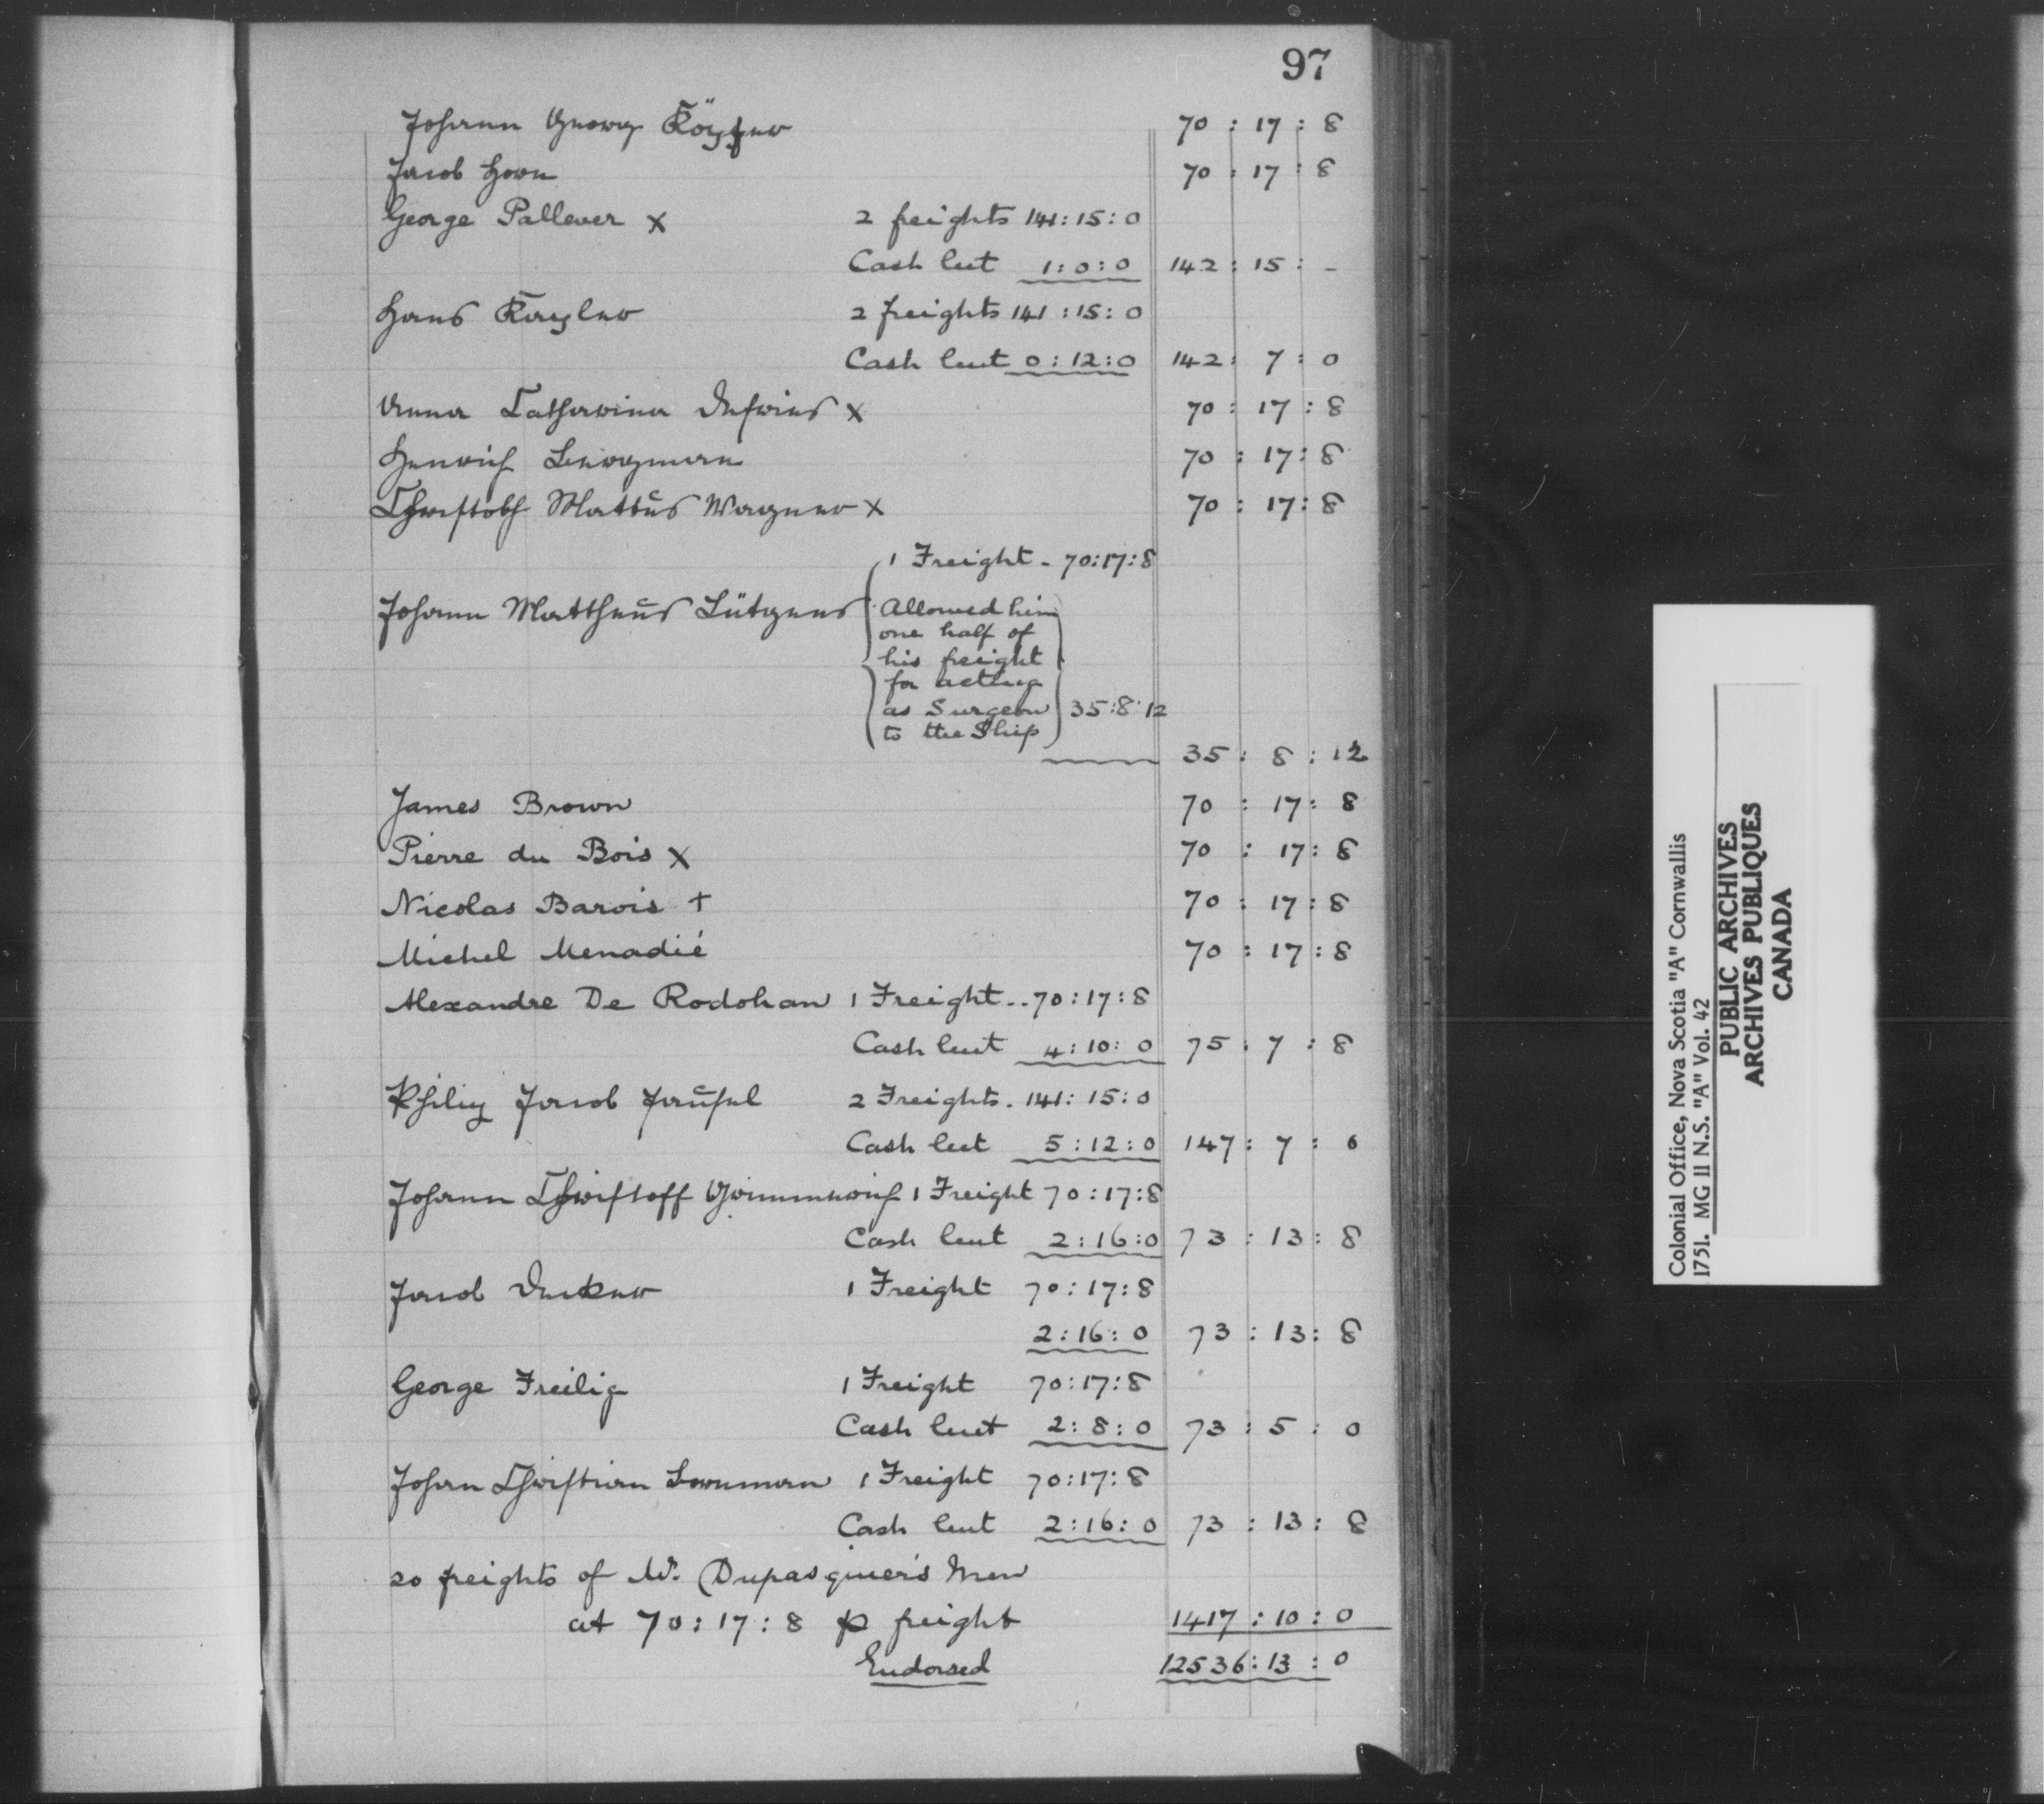 97
Johann Georg Köhler 70 : 17 : 8
Jacob Horn 70 : 17 : 8
George Pallever x 2 freights 141:15:0
Cash lent 1:0:0 142 : 15 : -
Hans 2 freights 141:15:0
Cash lent 0:12:0 142 : 7 : 0
Anna Catharina x 70 : 17 : 8
Henrich Bergmann 70 : 17 : 8
Christoff Matteus Wagner x 70 : 17 : 8
1 Freight - 70:17:8
Johann Mattheus Lütgens Allowed him
one half of
his freight
for acting
as Surgeon 35:8:12
to the Ship
35 : 8 : 12
James Brown 70 : 17 : 8
Pierre du Bois x 70 : 17 : 8
Nicolas Barois + 70 : 17 : 8
Michel Menadié 70 : 17 : 8
Alexandre De Rodohan 1 Freight .. 70:17:8
Cash lent 4:10:0 75 : 7 : 8
Philip Jacob 2 Freights . 141:15:0
Cash lent 5:12:0 147 : 7 : 0
Johann Christoff 1 Freight 70:17:8
Cash lent 2:16:0 73 : 13 : 8
Jacob Decker 1 Freight 70:17:8
2:16:0 73 : 13 : 8
George Freilig 1 Freight 70:17:8
Cash lent 2:8:0 73 : 5 : 0
Johan Christian Bornman 1 Freight 70:17:8
Cash lent 2:16:0 73 : 13 : 8
20 freights of Mr. Dupasquier's Men
at 70:17:8 p freight 1417 : 10 : 0
Endorsed 12536 : 13 : 0
Colonial Office, Nova Scotia "A" Cornwallis
1751. MG 11 N.S. "A" Vol. 42
PUBLIC ARCHIVES
ARCHIVES PUBLIQUES
CANADA